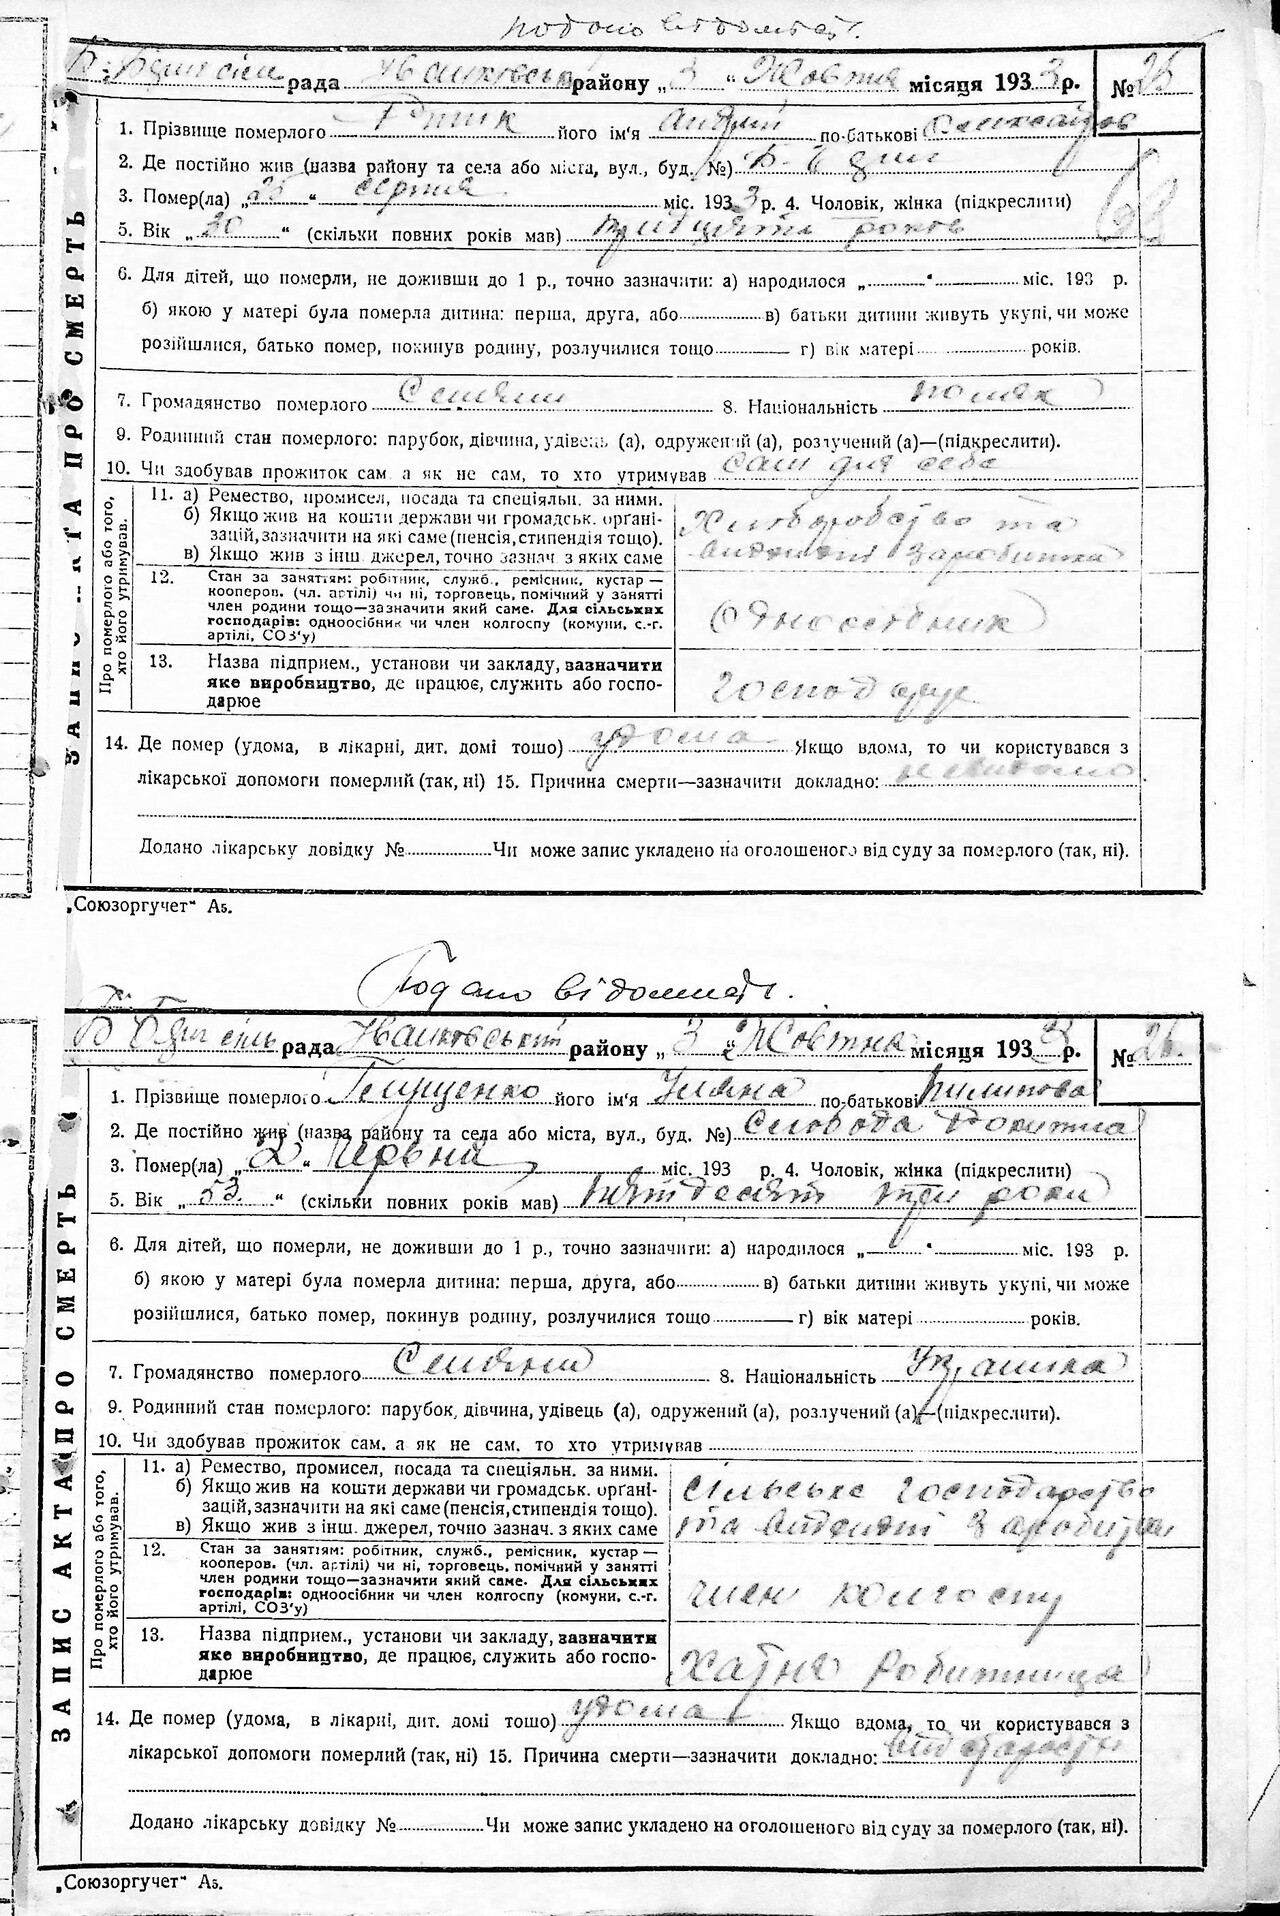 Подано відомість.
Б. Бдин сіль рада Іванківський району „3“ Жовтня місяця 1933 р. № 25
ЗАПИС АКТА ПРО СМЕРТЬ
1. Прізвище померлого його ім'я Андрій по-батькові
2. Де постійно жив (назва району та села або міста, вул., буд. №)
3. Помер(ла) „25“ серпня міс. 1933 р. 4. Чоловік, жінка (підкреслити)
5. Вік „30“ (скільки повних років мав) тридцять років
6. Для дітей, що померли, не доживши до 1 р., точно зазначити: а) народилося „ “ міс. 193 р.
б) якою у матері була померла дитина: перша, друга, або в) батьки дитини живуть укупі, чи може
розійшлися, батько помер, покинув родину, розлучилися тощо г) вік матері років.
7. Громадянство померлого Селянин 8. Національність поляк
9. Родинний стан померлого: парубок, дівчина, удівець (а), одружений (а), розлучений (а)—(підкреслити).
10. Чи здобував прожиток сам а як не сам, то хто утримував сам для себе
Про померлого або того, хто його утримував.
11. а) Ремество, промисел, посада та спеціяльн. за ними.
б) Якщо жив на кошти держави чи громадськ. орґані-
зацій, зазначити на які саме (пенсія, стипендія тощо).
в) Якщо жив з інш. джерел, точно зазнач. з яких саме
Хліборобство та
видатні заробітки
12. Стан за заняттям: робітник, служб., ремісник, кустар—
кооперов. (чл. артілі) чи ні, торговець, помічний у занятті
член родини тощо—зазначити який саме. Для сільських
господарів: одноосібник чи член колгоспу (комуни, с.-г.
артілі, СОЗ'у)
Одноосібник
13. Назва підприєм., установи чи закладу, зазначити
яке виробництво, де працює, служить або госпо-
дарює
господарює
14. Де помер (удома, в лікарні, дит. домі тощо) удома Якщо вдома, то чи користувався з
лікарської допомоги померлий (так, ні) 15. Причина смерти—зазначити докладно: невідомо
Додано лікарську довідку № Чи може запис укладено на оголошеного від суду за померлого (так, ні).
„Союзоргучет“ А5.
Подано відомість.
Б Бдин сіль рада Іванківський району „3“ Жовтня місяця 1933 р. № 26.
ЗАПИС АКТА ПРО СМЕРТЬ
1. Прізвище померлого його ім'я Уляна по-батькові Пилипова
2. Де постійно жив (назва району та села або міста, вул., буд. №) Слобода
3. Помер(ла) „2“ Червня міс. 193 р. 4. Чоловік, жінка (підкреслити)
5. Вік „53.“ (скільки повних років мав) пятдесят три роки
6. Для дітей, що померли, не доживши до 1 р., точно зазначити: а) народилося „ “ міс. 193 р.
б) якою у матері була померла дитина: перша, друга, або в) батьки дитини живуть укупі, чи може
розійшлися, батько помер, покинув родину, розлучилися тощо г) вік матері років.
7. Громадянство померлого Селянин 8. Національність Українка
9. Родинний стан померлого: парубок, дівчина, удівець (а), одружений (а), розлучений (а)—(підкреслити).
10. Чи здобував прожиток сам. а як не сам. то хто утримував
Про померлого або того, хто його утримував.
11. а) Ремество, промисел, посада та спеціяльн. за ними.
б) Якщо жив на кошти держави чи громадськ. орґані-
зацій, зазначити на які саме (пенсія, стипендія тощо).
в) Якщо жив з інш. джерел, точно зазнач. з яких саме
Сільське господарство
та видатні заробітки
12. Стан за заняттям: робітник, служб., ремісник, кустар—
кооперов. (чл. артілі) чи ні, торговець, помічний у занятті
член родини тощо—зазначити який саме. Для сільських
господарів: одноосібник чи член колгоспу (комуни, с.-г.
артілі, СОЗ'у)
член колгоспу
13. Назва підприєм., установи чи закладу, зазначити
яке виробництво, де працює, служить або госпо-
дарює
Хатня робітниця
14. Де помер (удома, в лікарні, дит. домі тощо) удома Якщо вдома, то чи користувався з
лікарської допомоги померлий (так, ні) 15. Причина смерти—зазначити докладно: від старости
Додано лікарську довідку № Чи може запис укладено на оголошеного від суду за померлого (так, ні).
„Союзоргучет“ А5.